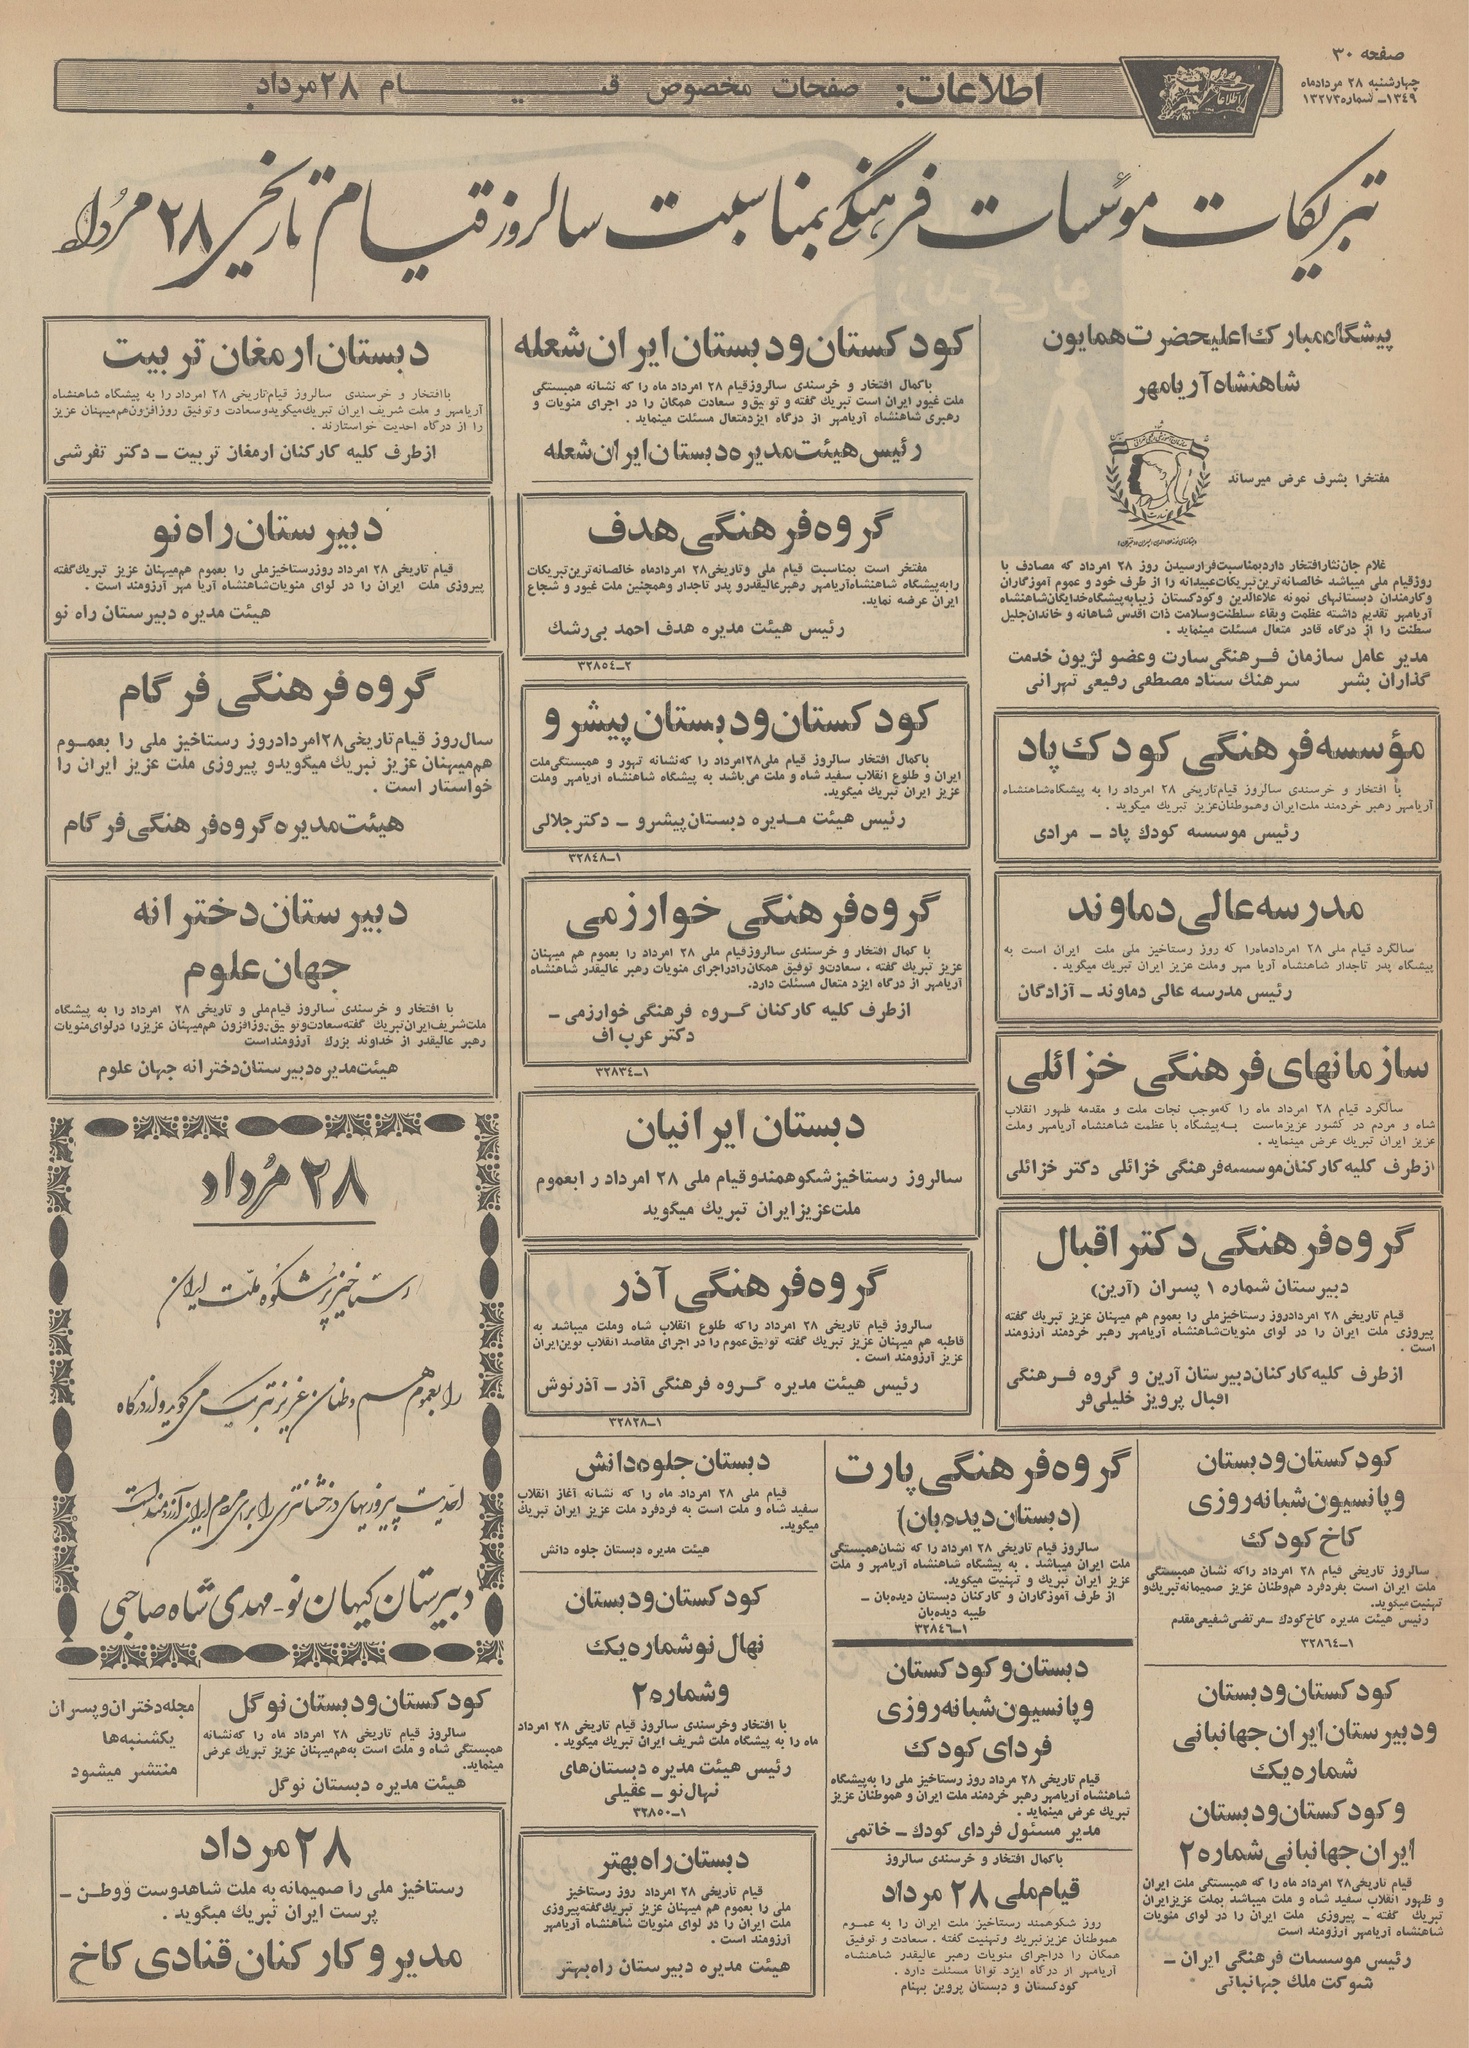 صفحه ۳۰
چهارشنبه ۲۸ مردادماه
۱۳۴۹ـ شماره ۱۳۲۷۳
اطلاعات
اطلاعات: صفحات مخصوص قیام ۲۸ مرداد
تبریکات موسسات فرهنگی بمناسبت سالروز قیام تاریخی ۲۸ مرداد
پیشگاه مبارک اعلیحضرت همایون
شاهنشاه آریامهر
مفتخرا بشرف عرض میرساند
غلام جان نثار افتخار دارد بمناسبت فرارسیدن روز ۲۸ امرداد که مصادف با
روز قیام ملی میباشد خالصانه ترین تبریکات عبیدانه را از طرف خود و عموم آموزگاران
و کارمندان دبستانهای نمونه علاءالدین و کودکستان زیبا به پیشگاه خدایگان شاهنشاه
آریامهر تقدیم داشته عظمت و بقاء سلطنت و سلامت ذات اقدس شاهانه و خاندان جلیل
سطنت را از درگاه قادر متعال مسئلت مینماید .
مدیر عامل سازمان فرهنگی سارت و عضو لژیون خدمت
گذاران بشر سرهنگ ستاد مصطفی رفیعی تهرانی
مؤسسه فرهنگی کودک پاد
با افتخار و خرسندی سالروز قیام تاریخی ۲۸ امرداد را به پیشگاه شاهنشاه
آریامهر رهبر خردمند ملت ایران و هموطنان عزیز تبریک میگوید .
رئیس موسسه کودک پاد ـ مرادی
مدرسه عالی دماوند
سالگرد قیام ملی ۲۸ امرداد ماه را که روز رستاخیز ملی ملت ایران است به
پیشگاه پدر تاجدار شاهنشاه آریا مهر و ملت عزیز ایران تبریک میگوید .
رئیس مدرسه عالی دماوند ـ آزادگان
سازمانهای فرهنگی خزائلی
سالگرد قیام ۲۸ امرداد ماه را که موجب نجات ملت و مقدمه ظهور انقلاب
شاه و مردم در کشور عزیز ماست به پیشگاه با عظمت شاهنشاه آریامهر و ملت
عزیز ایران تبریک عرض مینماید .
از طرف کلیه کارکنان موسسه فرهنگی خزائلی دکتر خزائلی
گروه فرهنگی دکتر اقبال
دبیرستان شماره ۱ پسران (آرین)
قیام تاریخی ۲۸ امرداد روز رستاخیز ملی را بعموم هم میهنان عزیز تبریک گفته
پیروزی ملت ایران را در لوای منویات شاهنشاه آریامهر رهبر خردمند آرزومند
است .
از طرف کلیه کارکنان دبیرستان آرین و گروه فرهنگی
اقبال پرویز خلیلی فر
کودکستان و دبستان ایران شعله
با کمال افتخار و خرسندی سالروز قیام ۲۸ امرداد ماه را که نشانه همبستگی
ملت غیور ایران است تبریک گفته و توفیق و سعادت همگان را در اجرای منویات و
رهبری شاهنشاه آریامهر از درگاه ایزد متعال مسئلت مینماید .
رئیس هیئت مدیره دبستان ایران شعله
گروه فرهنگی هدف
مفتخر است بمناسبت قیام ملی و تاریخی ۲۸ امرداد ماه خالصانه ترین تبریکات
را به پیشگاه شاهنشاه آریامهر رهبر عالیقدر و پدر تاجدار و همچنین ملت غیور و شجاع
ایران عرضه نماید.
رئیس هیئت مدیره هدف احمد بی رشک
۲ـ۳۲۸۵۴
کودکستان و دبستان پیشرو
با کمال افتخار سالروز قیام ملی ۲۸ امرداد را که نشانه تهور و همبستگی ملت
ایران و طلوع انقلاب سفید شاه و ملت می باشد به پیشگاه شاهنشاه آریامهر و ملت
عزیز ایران تبریک میگوید.
رئیس هیئت مدیره دبستان پیشرو ـ دکتر جلالی
۱ـ۳۲۸۴۸
گروه فرهنگی خوارزمی
با کمال افتخار و خرسندی سالروز قیام ملی ۲۸ امرداد را بعموم هم میهنان
عزیز تبریک گفته ، سعادت و توفیق همگان را در اجرای منویات رهبر عالیقدر شاهنشاه
آریامهر از درگاه ایزد متعال مسئلت دارد.
از طرف کلیه کارکنان گروه فرهنگی خوارزمی ـ
دکتر عرب اف
۱ـ۳۲۸۳۴
دبستان ایرانیان
سالروز رستاخیز شکوهمند و قیام ملی ۲۸ امرداد را بعموم
ملت عزیز ایران تبریک میگوید
گروه فرهنگی آذر
سالروز قیام تاریخی ۲۸ امرداد را که طلوع انقلاب شاه و ملت میباشد به
قاطبه هم میهنان عزیز تبریک گفته توفیق عموم را در اجرای مقاصد انقلاب نوین ایران
عزیز آرزومند است .
رئیس هیئت مدیره گروه فرهنگی آذر ـ آذرنوش
۱ـ۳۲۸۲۸
دبستان ارمغان تربیت
با افتخار و خرسندی سالروز قیام تاریخی ۲۸ امرداد را به پیشگاه شاهنشاه
آریامهر و ملت شریف ایران تبریک میگوید و سعادت و توفیق روزافزون هم میهنان عزیز
را از درگاه احدیت خواستارند .
از طرف کلیه کارکنان ارمغان تربیت ـ دکتر تفرشی
دبیرستان راه نو
قیام تاریخی ۲۸ امرداد روز رستاخیز ملی را بعموم هم میهنان عزیز تبریک گفته
پیروزی ملت ایران را در لوای منویات شاهنشاه آریا مهر آرزومند است .
هیئت مدیره دبیرستان راه نو
گروه فرهنگی فرگام
سال روز قیام تاریخی ۲۸ امرداد روز رستاخیز ملی را بعموم
هم میهنان عزیز تبریک میگوید و پیروزی ملت عزیز ایران را
خواستار است .
هیئت مدیره گروه فرهنگی فرگام
دبیرستان دخترانه
جهان علوم
با افتخار و خرسندی سالروز قیام ملی و تاریخی ۲۸ امرداد را به پیشگاه
ملت شریف ایران تبریک گفته سعادت و توفیق روزافزون هم میهنان عزیز را در لوای منویات
رهبر عالیقدر از خداوند بزرگ آرزومند است
هیئت مدیره دبیرستان دخترانه جهان علوم
۲۸ مرداد
رستاخیز پرشکوه ملت ایران
را بعموم هم وطنان عزیز تبریک می گوید و از درگاه
احدیت پیروزیهای درخشانتری را برای مردم ایران آرزومند است
دبیرستان کیهان نو ـ مهدی شاه صاحبی
کودکستان و دبستان نوگل
سالروز قیام تاریخی ۲۸ امرداد ماه را که نشانه
همبستگی شاه و ملت است به هم میهنان عزیز تبریک عرض
مینماید.
هیئت مدیره دبستان نوگل
مجله دختران و پسران
یکشنبه ها
منتشر میشود
۲۸ مرداد
رستاخیز ملی را صمیمانه به ملت شاهدوست و وطن ـ
پرست ایران تبریک میگوید .
مدیر و کارکنان قنادی کاخ
کودکستان و دبستان
و پانسیون شبانه روزی
کاخ کودک
سالروز تاریخی قیام ۲۸ امرداد را که نشان همبستگی
ملت ایران است بفرد فرد هم وطنان عزیز صمیمانه تبریک و
تهنیت میگوید.
رئیس هیئت مدیره کاخ کودک ـ مرتضی شفیعی مقدم
۱ـ۳۲۸۶۴
کودکستان و دبستان
و دبیرستان ایران جهانبانی
شماره یک
و کودکستان و دبستان
ایران جهانبانی شماره ۲
قیام تاریخی ۲۸ امرداد ماه را که همبستگی ملت ایران
و ظهور انقلاب سفید شاه و ملت میباشد بملت عزیز ایران
تبریک گفته ـ پیروزی ملت ایران را در لوای منویات
شاهنشاه آریامهر آرزومند است
رئیس موسسات فرهنگی ایران ـ
شوکت ملک جهانبانی
گروه فرهنگی پارت
(دبستان دیده بان)
سالروز قیام تاریخی ۲۸ امرداد را که نشان همبستگی
ملت ایران میباشد . به پیشگاه شاهنشاه آریامهر و ملت
عزیز ایران تبریک و تهنیت میگوید.
از طرف آموزگاران و کارکنان دبستان دیده بان ـ
طیبه دیده بان
۱ـ۳۲۸۴۶
دبستان و کودکستان
و پانسیون شبانه روزی
فردای کودک
قیام تاریخی ۲۸ مرداد روز رستاخیز ملی را به پیشگاه
شاهنشاه آریامهر رهبر خردمند ملت ایران و هموطنان عزیز
تبریک عرض مینماید .
مدیر مسئول فردای کودک ـ خاتمی
با کمال افتخار و خرسندی سالروز
قیام ملی ۲۸ مرداد
روز شکوهمند رستاخیز ملت ایران را به عموم
هموطنان عزیز تبریک و تهنیت گفته . سعادت و توفیق
همگان را در اجرای منویات رهبر عالیقدر شاهنشاه
آریامهر از درگاه ایزد توانا مسئلت دارد .
کودکستان و دبستان پروین بهنام
دبستان جلوه دانش
قیام ملی ۲۸ امرداد ماه را که نشانه آغاز انقلاب
سفید شاه و ملت است به فرد فرد ملت عزیز ایران تبریک
میگوید.
هیئت مدیره دبستان جلوه دانش
کودکستان و دبستان
نهال نو شماره یک
و شماره ۲
با افتخار و خرسندی سالروز قیام تاریخی ۲۸ امرداد
ماه را به پیشگاه ملت شریف ایران تبریک میگوید .
رئیس هیئت مدیره دبستان های
نهال نو ـ عقیلی
۱ـ۳۲۸۵۰
دبستان راه بهتر
قیام تاریخی ۲۸ امرداد روز رستاخیز
ملی را بعموم هم میهنان عزیز تبریک گفته پیروزی
ملت ایران را در لوای منویات شاهنشاه آریامهر
آرزومند است .
هیئت مدیره دبیرستان راه بهتر